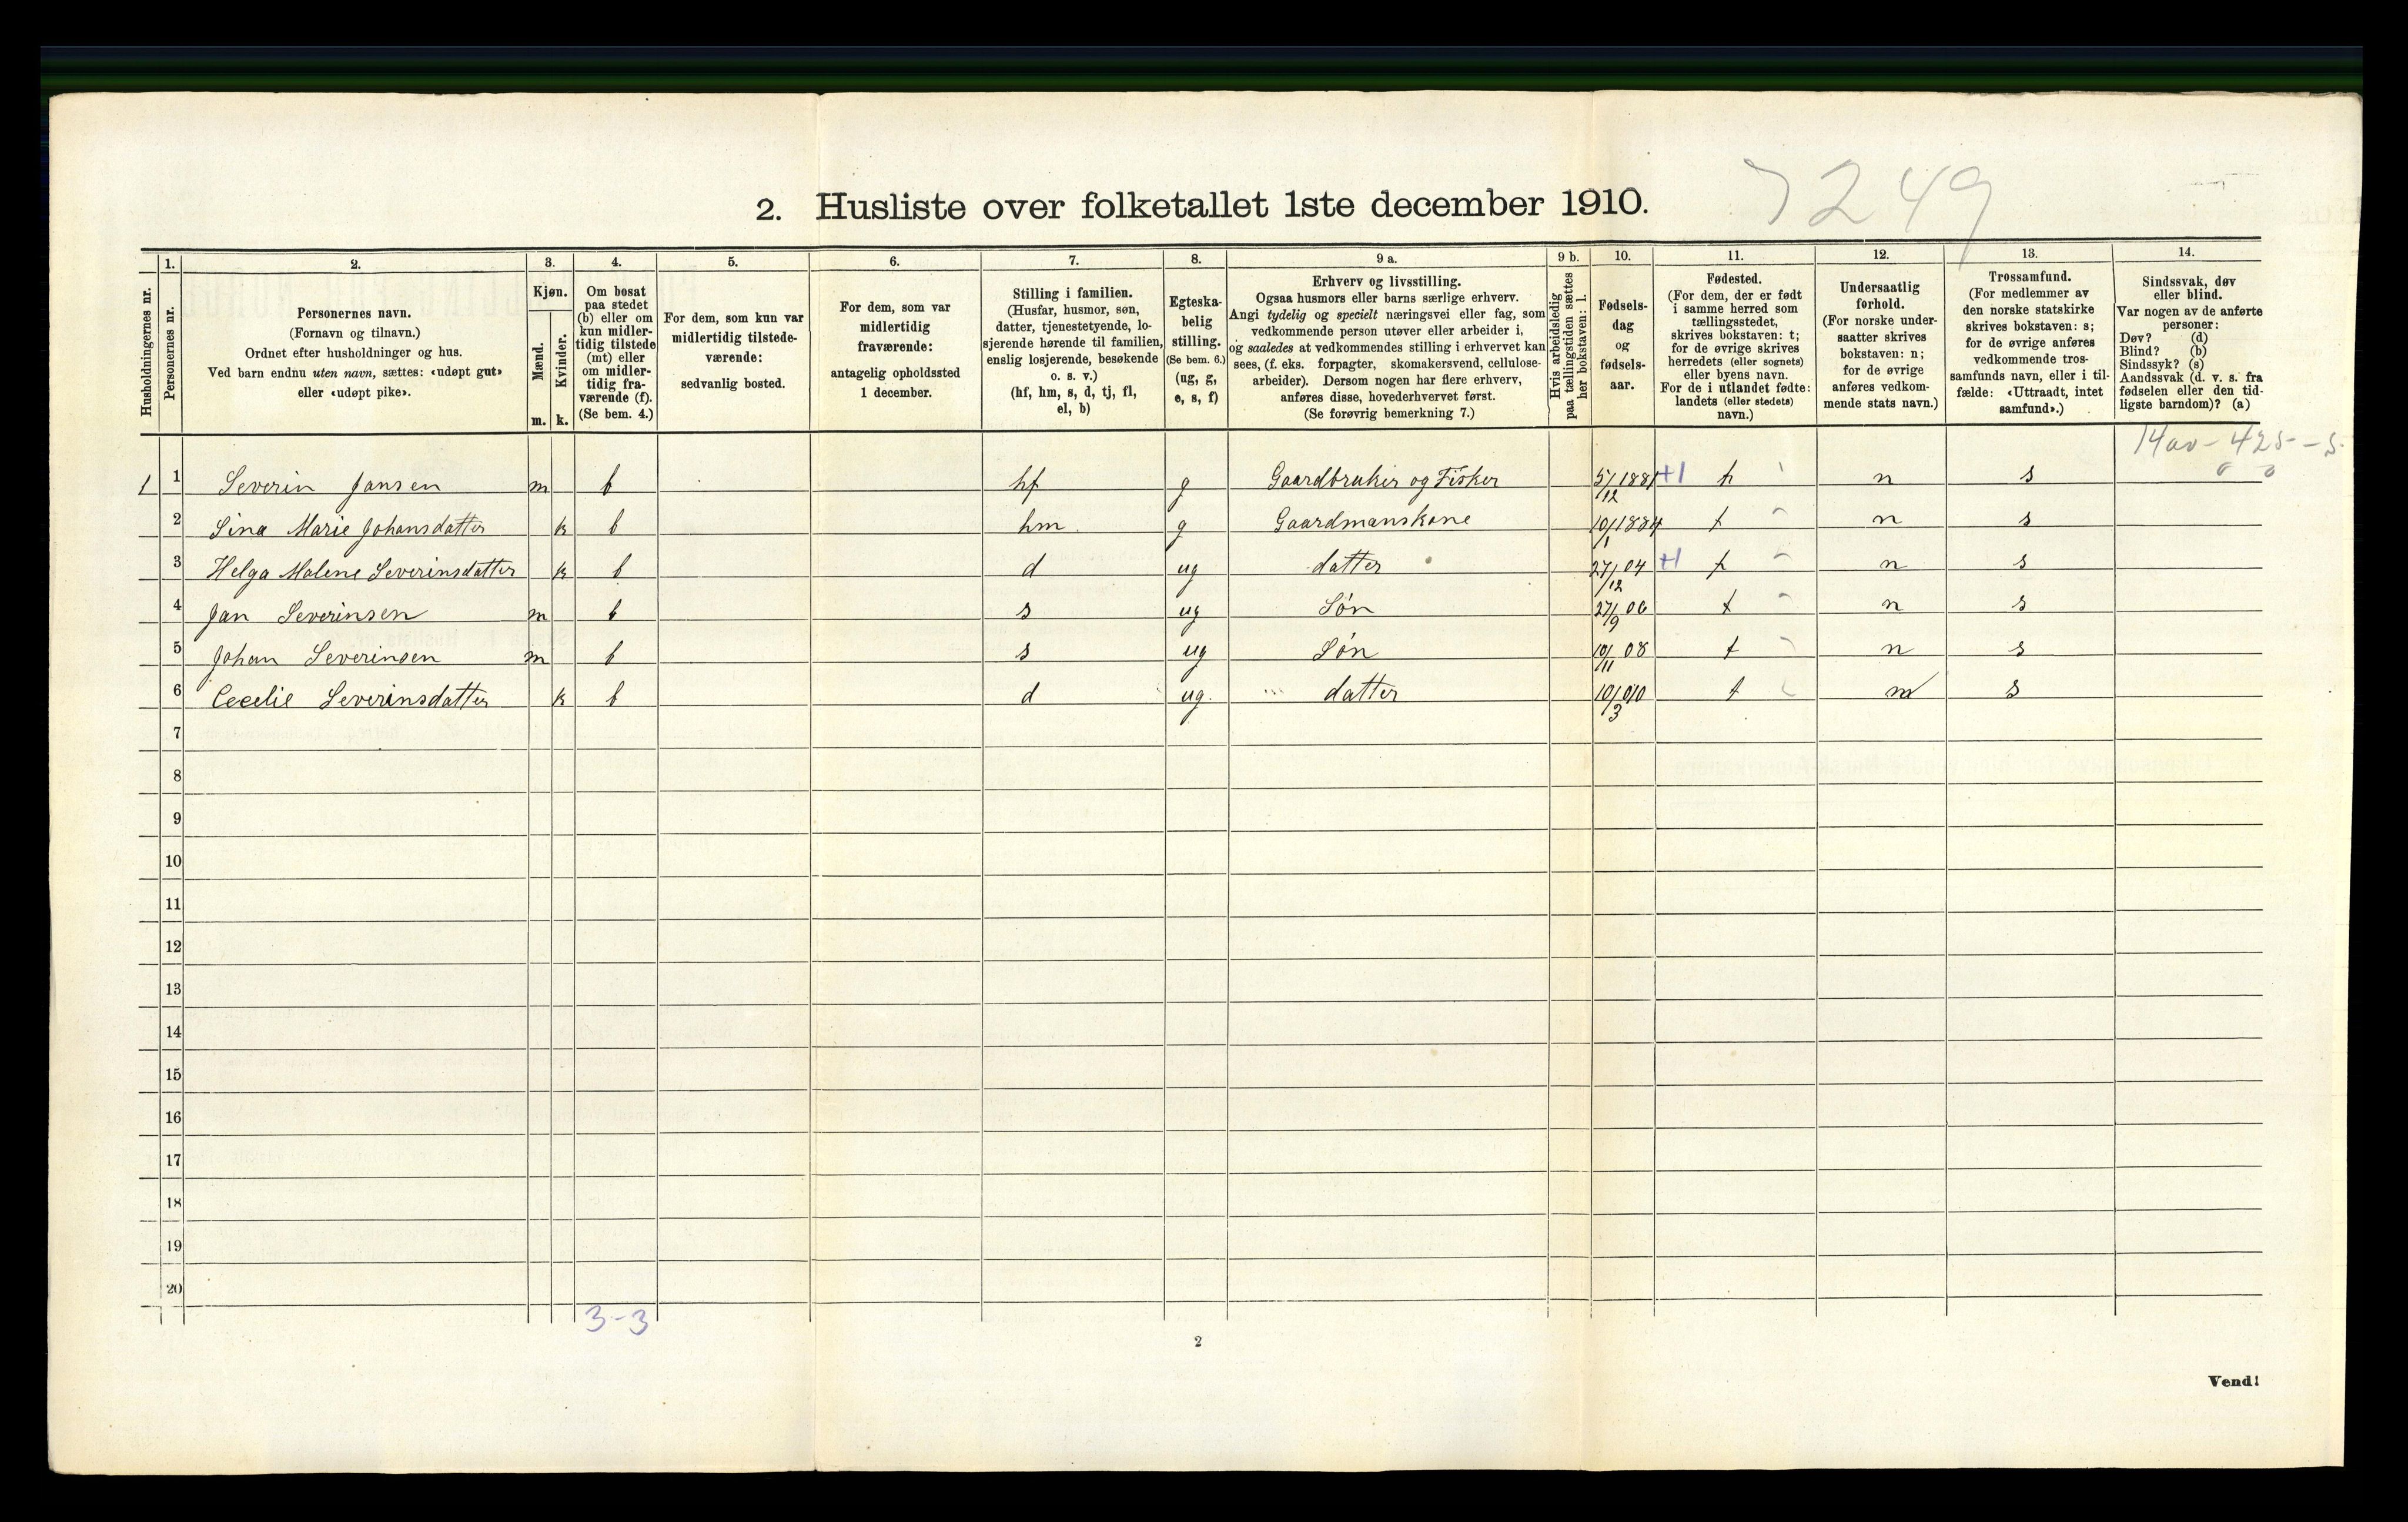 7249
2. Husliste over folketallet 1ste december 1910.
Husholdningernes nr.
1. Personernes nr.
2. Personernes navn.
(Fornavn og tilnavn.)
Ordnet efter husholdninger og hus.
Ved barn endnu uten navn, sættes: «udøpt gut»
eller «udøpt pike».
3. Kjøn.
Mænd. m.
Kvinder. k.
4. Om bosat
paa stedet
(b) eller om
kun midler-
tidig tilstede
(mt) eller
om midler-
tidig fra-
værende (f).
(Se bem. 4.)
5. For dem, som kun var
midlertidig tilstede-
værende:
sedvanlig bosted.
6. For dem, som var
midlertidig
fraværende:
antagelig opholdssted
1 december.
7. Stilling i familien.
(Husfar, husmor, søn,
datter, tjenestetyende, lo-
sjerende hørende til familien,
enslig losjerende, besøkende
o. s. v.)
(hf, hm, s, d, tj, fl,
el, b)
8. Egteska-
belig
stilling.
(Se bem. 6.)
(ug, g,
e, s, f)
9 a. Erhverv og livsstilling.
Ogsaa husmors eller barns særlige erhverv.
Angi tydelig og specielt næringsvei eller fag, som
vedkommende person utøver eller arbeider i,
og saaledes at vedkommendes stilling i erhvervet kan
sees, (f. eks. forpagter, skomakersvend, cellulose-
arbeider). Dersom nogen har flere erhverv,
anføres disse, hovederhvervet først.
(Se forøvrig bemerkning 7.)
9 b. Hvis arbeidsledig
paa tællingstiden sættes
her bokstaven: l.
10. Fødsels-
dag
og
fødsels-
aar.
11. Fødested.
(For dem, der er født
i samme herred som
tællingsstedet,
skrives bokstaven: t;
for de øvrige skrives
herredets (eller sognets)
eller byens navn.
For de i utlandet fødte:
landets (eller stedets)
navn.)
12. Undersaatlig
forhold.
(For norske under-
saatter skrives
bokstaven: n;
for de øvrige
anføres vedkom-
mende stats navn.)
13. Trossamfund.
(For medlemmer av
den norske statskirke
skrives bokstaven: s;
for de øvrige anføres
vedkommende tros-
samfunds navn, eller i til-
fælde: «Uttraadt, intet
samfund».)
14. Sindssvak, døv
eller blind.
Var nogen av de anførte
personer:
Døv? (d)
Blind? (b)
Sindssyk? (s)
Aandssvak (d. v. s. fra
fødselen eller den tid-
ligste barndom)? (a)
1 1 Severin Jansen m b hf g Gaardbruker og Fisker 5/12 1881 +1 t n s
2 Sina Marie Johansdatter k b hm g Gaardmanskone 10/1 1884 t n s
3 Helga Malene Severinsdatter k b d ug datter 27/12 04 +1 t n s
4 Jan Severinsen m b s ug Søn 27/9 06 t n s
5 Johan Severinsen m b s ug Søn 10/11 08 t n s
6 Cecelie Severinsdatter k b d ug. datter 10/3 010 t n s
7
8
9
10
11
12
13
14
15
16
17
18
19
20
3-3
2
Vend!